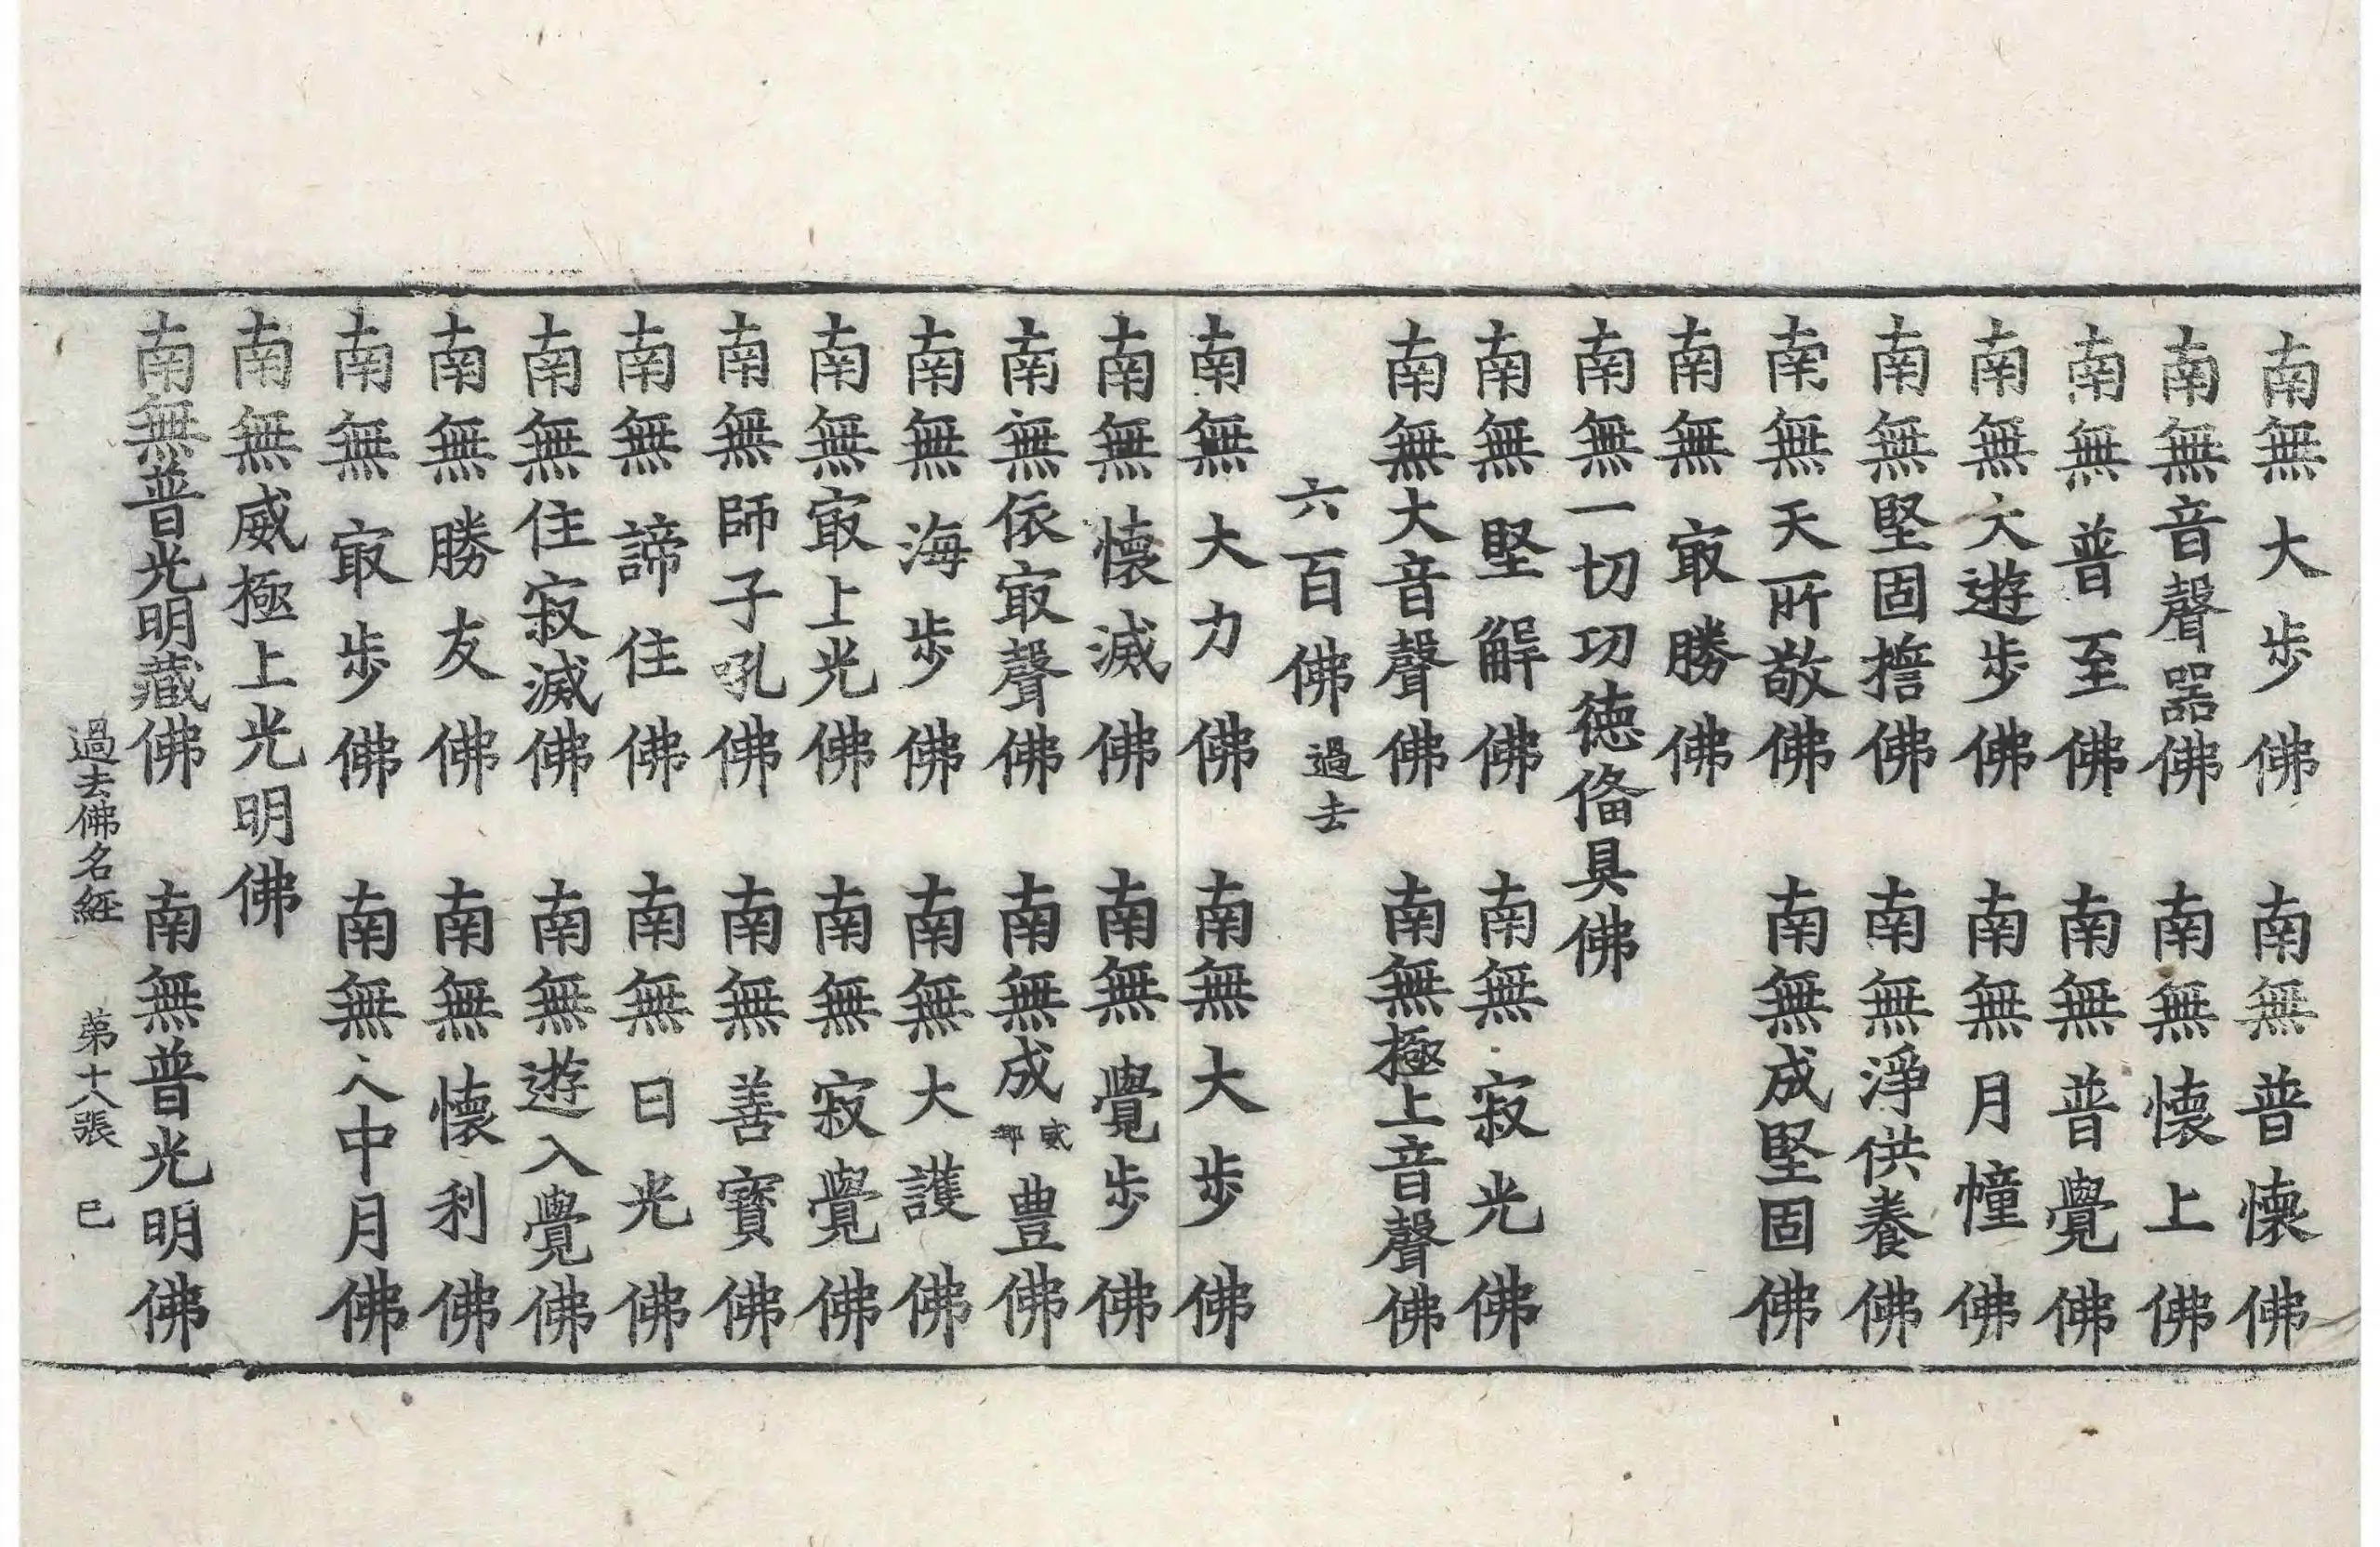 南無大步佛 南無普懷佛
南無音聲器佛 南無懷上佛
南無普至佛 南無普覺佛
南無大遊步佛 南無月幢佛
南無堅固㨾佛 南無淨供養佛
南無天所敬佛 南無成堅固佛
南無㝡勝佛
南無一切功德俻具佛
南無堅解佛 南無寂光佛
南無大音聲佛 南無極上音聲佛
六百佛過去
南無大力佛 南無大步佛
南無懷滅佛 南無覺步佛
南無依㝡聲佛 南無成豊佛
南無海步佛 南無大護佛
南無㝡上光佛 南無寂覺佛
南無師子吼佛 南無善寶佛
南無諦住佛 南無日光佛
南無住寂滅佛 南無遊入覺佛
南無勝友佛 南無懷利佛
南無㝡步佛 南無人中月佛
南無威極上光明佛
南無普光明藏佛 南無普光明佛
過去佛名經 苐十八張 巳